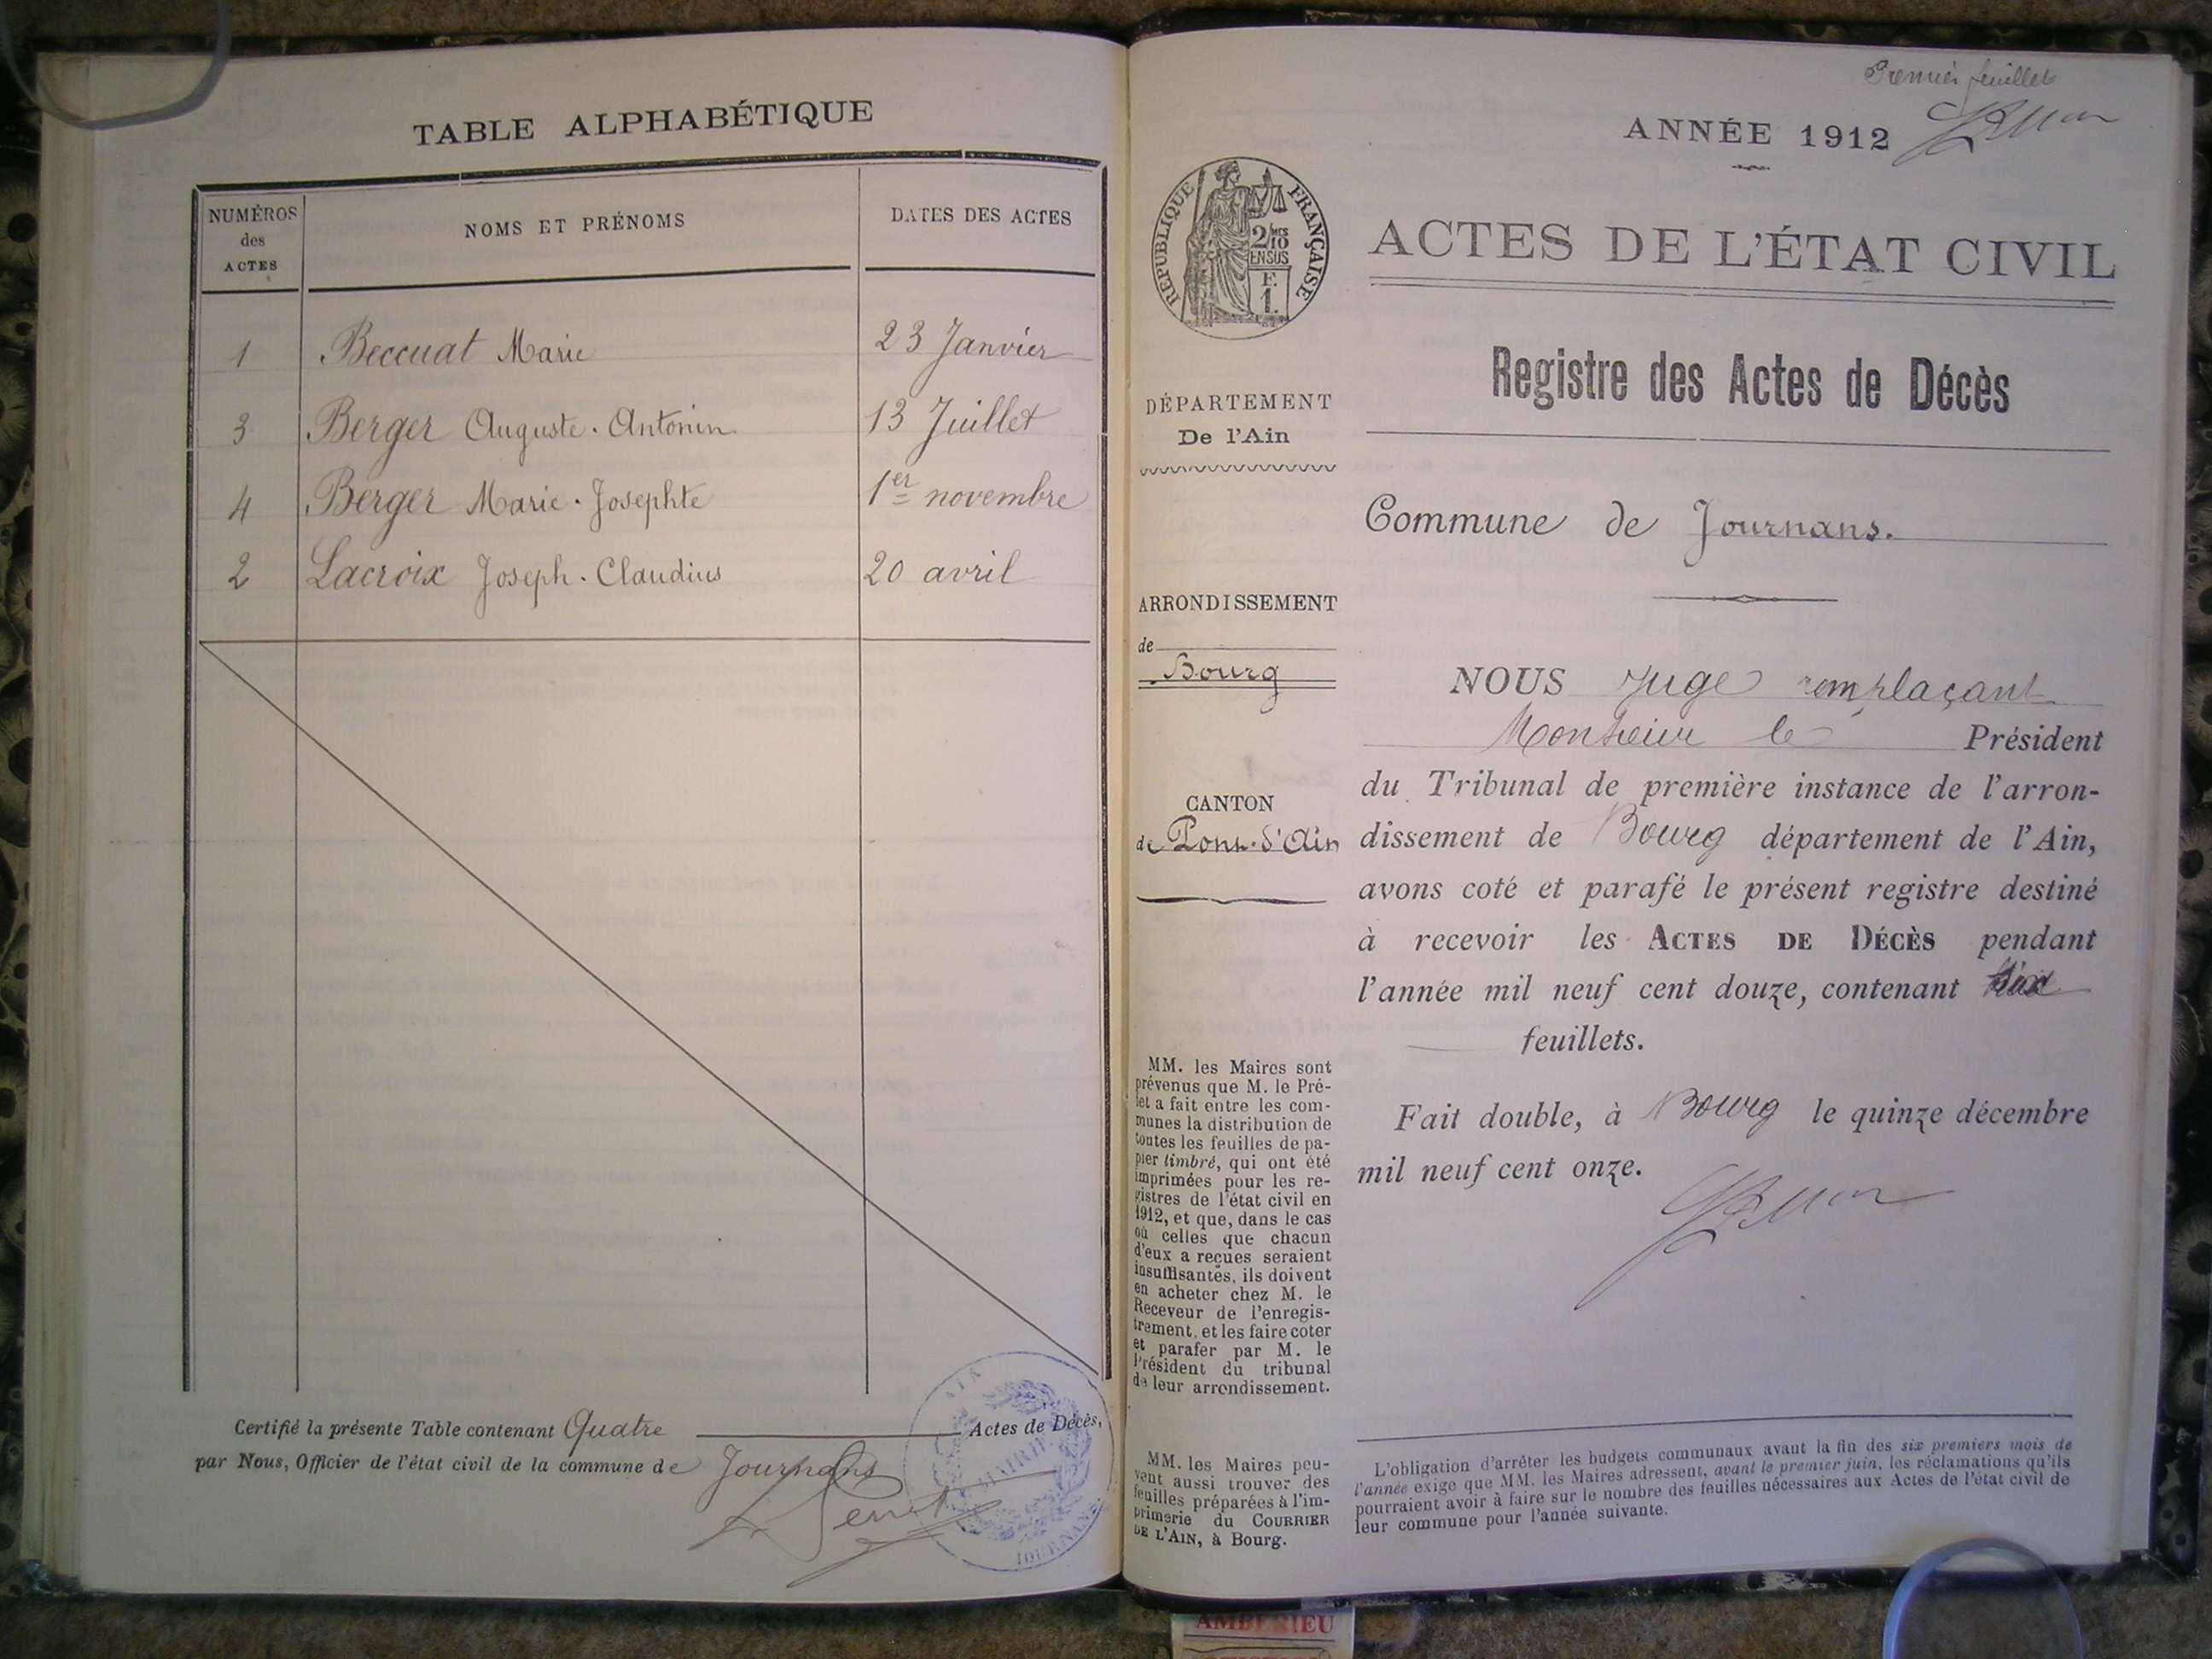 TABLE ALPHABÉTIQUE
NUMÉROS des ACTES
NOMS ET PRÉNOMS
DATES DES ACTES
1 Beccuat Marie 23 Janvier
3 Berger Auguste. Antonin 13 Juillet
4 Berger Marie. Josephte 1er novembre
2 Lacroix Joseph. Claudius 20 avril
Certifié la présente Table contenant Quatre Actes de Décès,
par Nous, Officier de l'état civil de la commune de Journans
MAIRIE
JOURNANS
Premier feuillet
ANNÉE 1912
RÉPUBLIQUE FRANÇAISE
2/10 MES
EN SUS
F.
1.
ACTES DE L'ÉTAT CIVIL
Registre des Actes de Décès
DÉPARTEMENT
De l'Ain
Commune de Journans.
ARRONDISSEMENT
de
Bourg
CANTON
de Pont-d'Ain
NOUS Juge remplaçant
Monsieur le Président
du Tribunal de première instance de l'arron-
dissement de Bourg département de l'Ain,
avons coté et parafé le présent registre destiné
à recevoir les ACTES DE DÉCÈS pendant
l'année mil neuf cent douze, contenant
feuillets.
Fait double, à Bourg le quinze décembre
mil neuf cent onze.
MM. les Maires sont
prévenus que M. le Pré-
fet a fait entre les com-
munes la distribution de
toutes les feuilles de pa-
pier timbré, qui ont été
imprimées pour les re-
gistres de l'état civil en
1912, et que, dans le cas
où celles que chacun
d'eux a reçues seraient
insuffisantes, ils doivent
en acheter chez M. le
Receveur de l'enregis-
trement, et les faire coter
et parafer par M. le
Président du tribunal
de leur arrondissement.
MM. les Maires peu-
vent aussi trouver des
feuilles préparées à l'im-
primerie du COURRIER
DE L'AIN, à Bourg.
L'obligation d'arrêter les budgets communaux avant la fin des six premiers mois de
l'année exige que MM. les Maires adressent, avant le premier juin, les réclamations qu'ils
pourraient avoir à faire sur le nombre des feuilles nécessaires aux Actes de l'état civil de
leur commune pour l'année suivante.
AMBERIEU